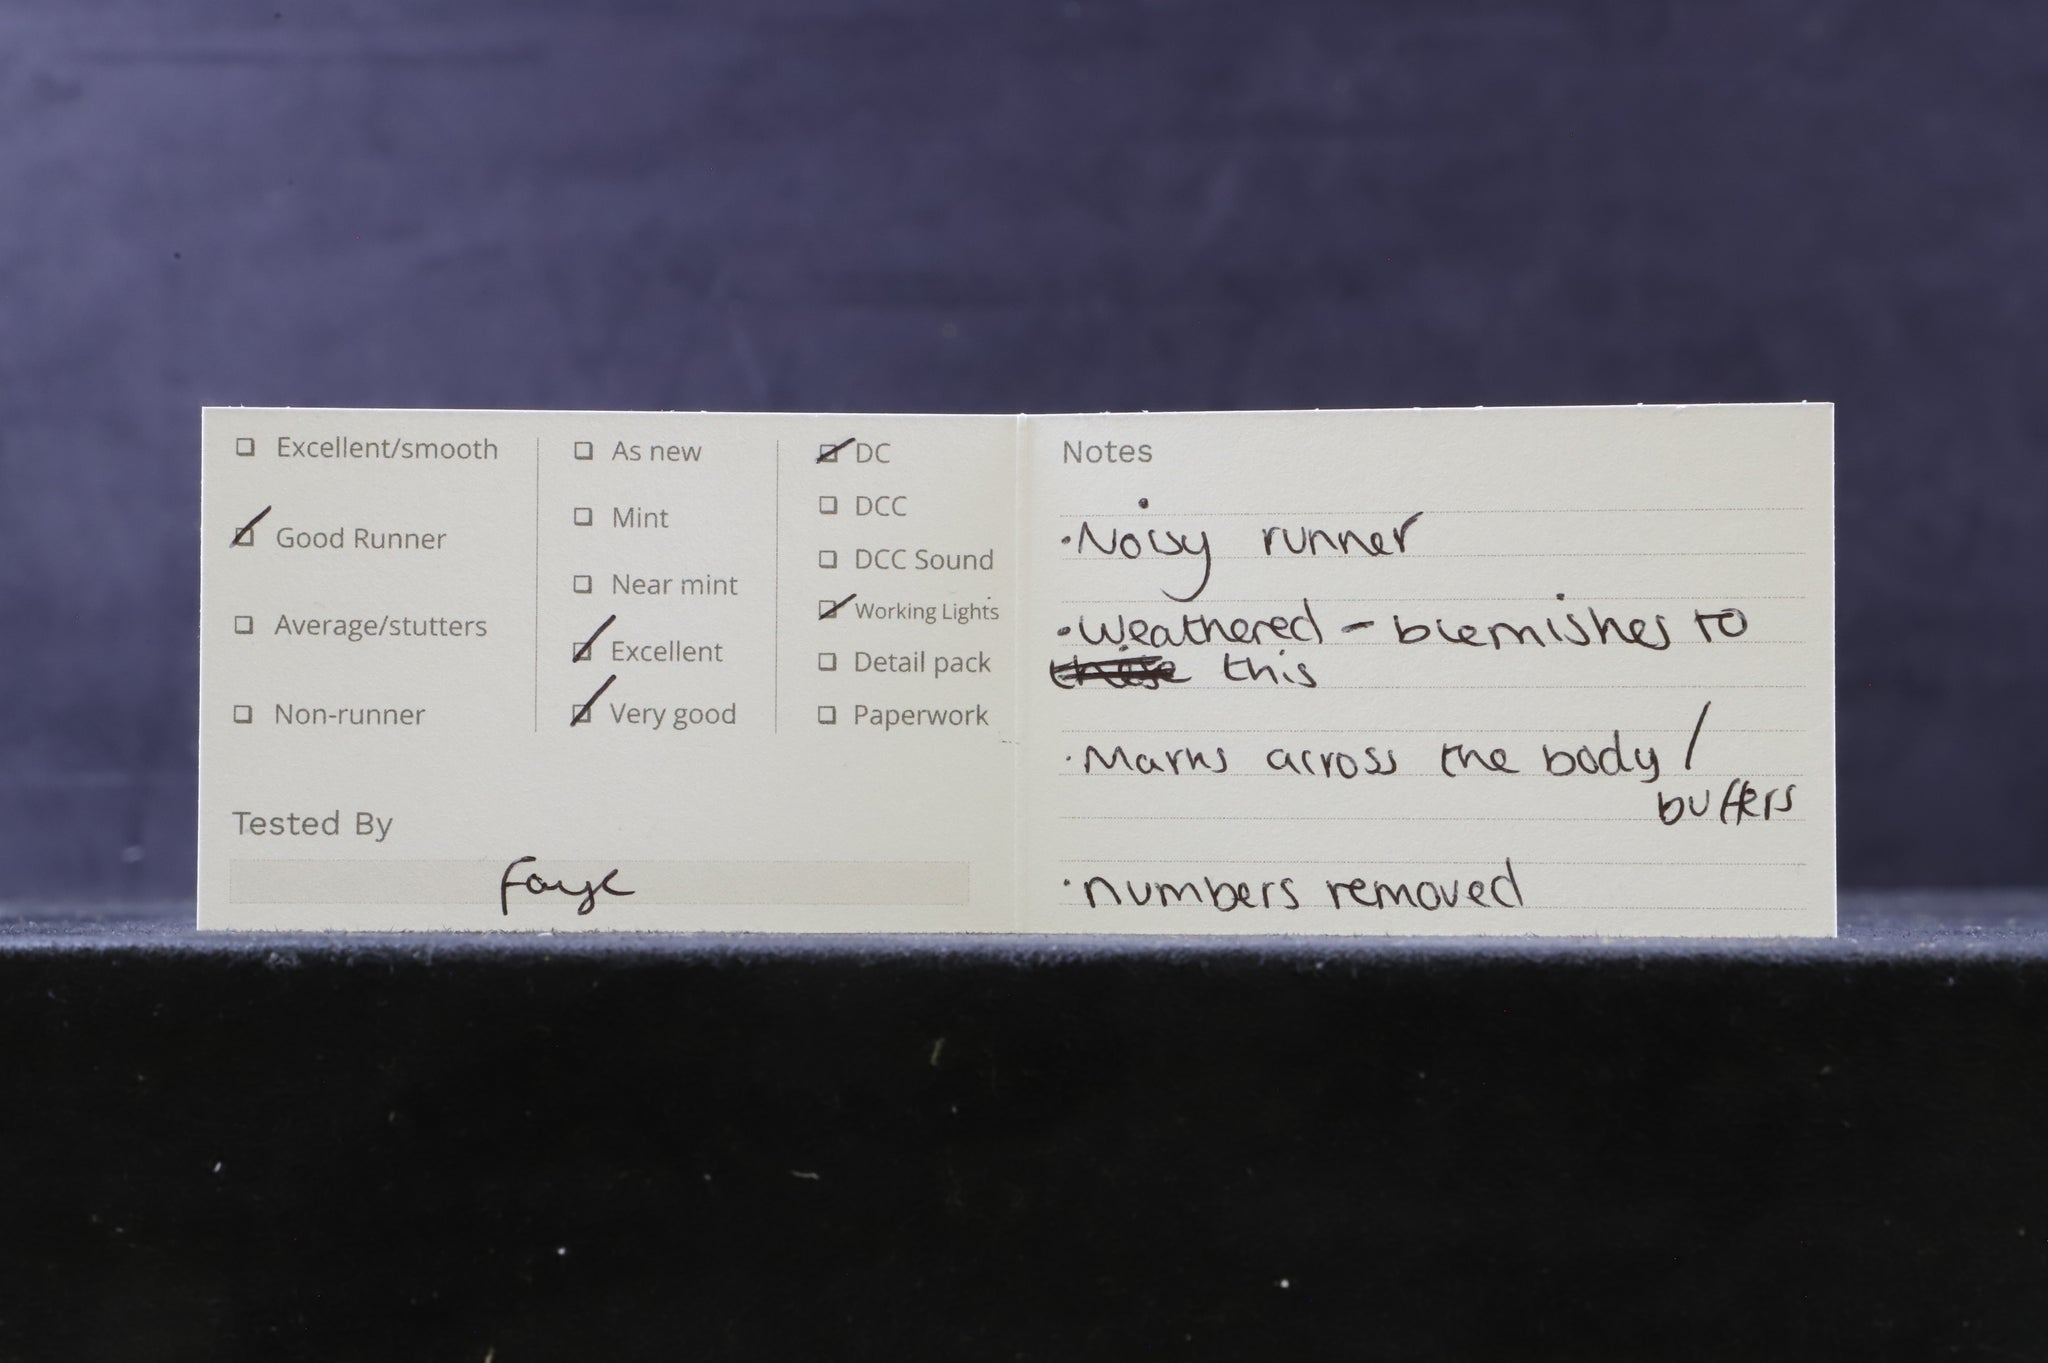 ☐ Excellent/smooth
☑ Good Runner
☐ Average/stutters
☐ Non-runner
☐ As new
☐ Mint
☐ Near mint
☑ Excellent
☑ Very good
☑ DC
☐ DCC
☐ DCC Sound
☑ Working Lights
☐ Detail pack
☐ Paperwork
Tested By
Faye
Notes
• Noisy runner
• Weathered - blemishes to
this
• Marks across the body /
buffers
• numbers removed